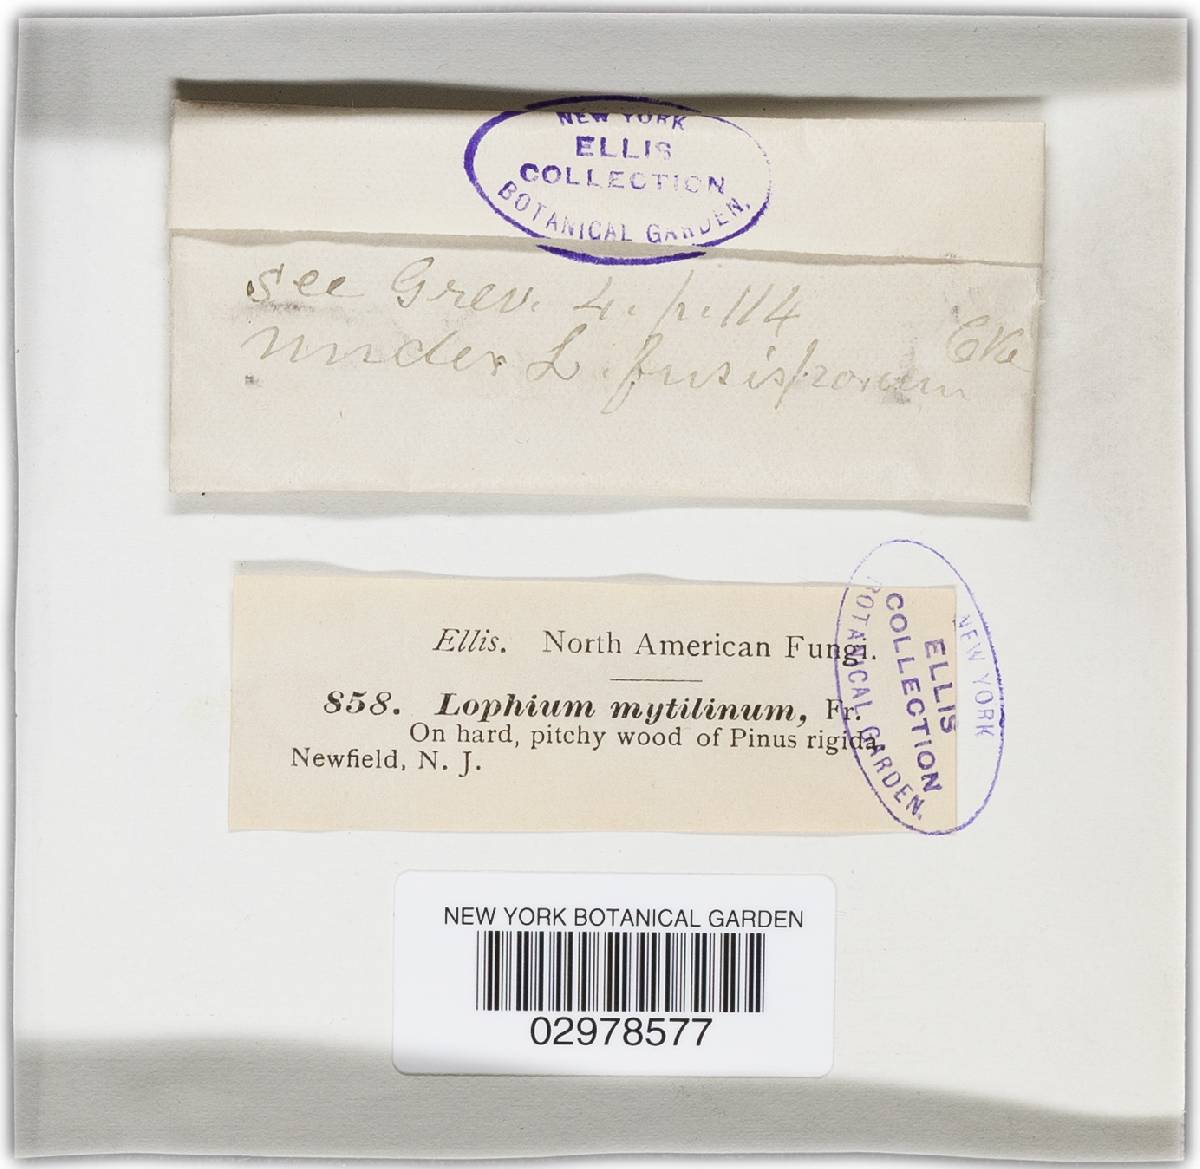 NEW YORK
ELLIS
COLLECTION
BOTANICAL GARDEN.
see Grev. 4. p. 114
under L. fusisporum
Ellis. North American Fungi.
858. Lophium mytilinum, Fr.
On hard, pitchy wood of Pinus rigida
Newfield, N. J.
NEW YORK
ELLIS
COLLECTION
BOTANICAL GARDEN.
NEW YORK BOTANICAL GARDEN
02978577